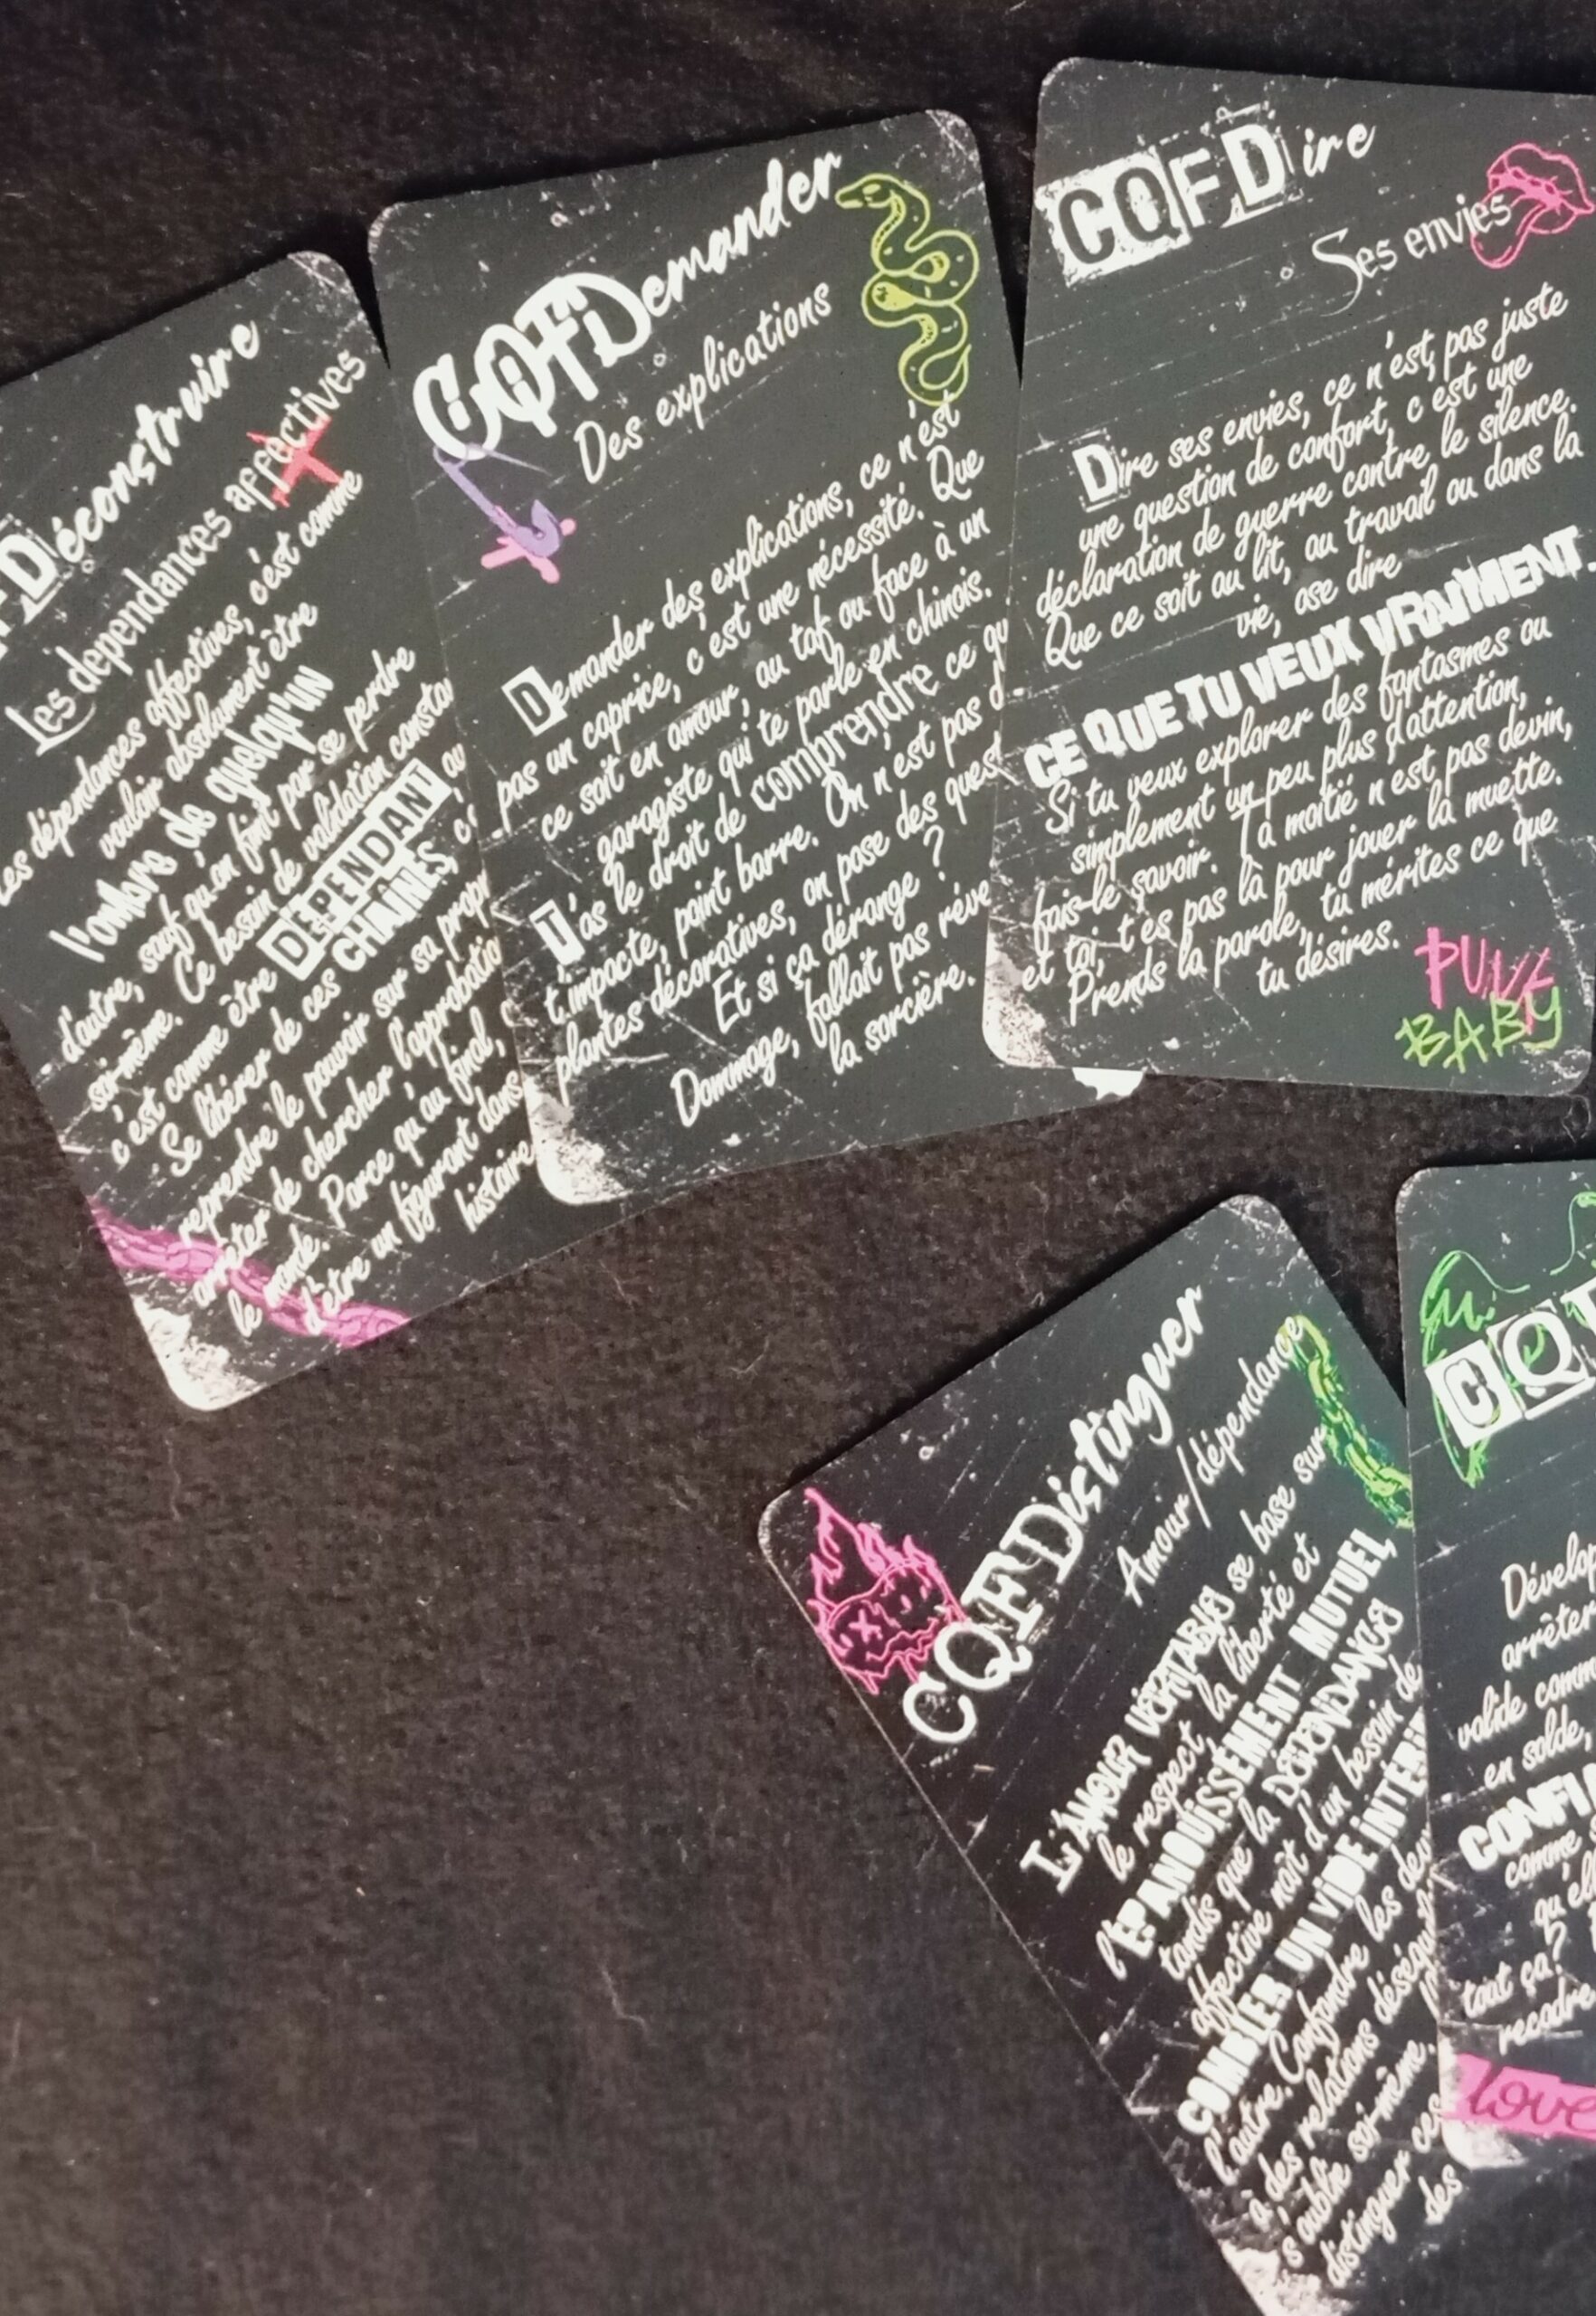 FDéconstruire
Les dépendances affectives
Les dépendances affectives, c'est comme
vouloir absolument être
l'ombre de quelqu'un
d'autre, sauf qu'on finit par se perdre
soi-même. Ce besoin de validation consta
c'est comme être DÉPENDANT
Se libérer de ces CHAINES, c'
reprendre le pouvoir sur sa prop
arrêter de chercher l'approbatio
le monde. Parce qu'au final,
d'être un figurant dans
histoire
CQFDemander
Des explications
Demander des explications, ce n'est
pas un caprice, c'est une nécessité. Que
ce soit en amour, au taf ou face à un
garagiste qui te parle en chinois.
T'as le droit de comprendre ce qu
t'impacte, point barre. On n'est pas d
plantes décoratives, on pose des ques
Et si ça dérange ?
Dommage, fallait pas réve
la sorcière.
CQFDire
Ses envies
Dire ses envies, ce n'est pas juste
une question de confort, c'est une
déclaration de guerre contre le silence.
Que ce soit au lit, au travail ou dans la
vie, ose dire
CE QUE TU VEUX VRAIMENT.
Si tu veux explorer des fantasmes ou
simplement un peu plus d'attention,
fais-le savoir. Ta moitié n'est pas devin,
et toi, t'es pas là pour jouer la muette.
Prends la parole, tu mérites ce que
tu désires.
PUNK
BABY
CQFDistinguer
Amour/dépendance
L'AMOUR VÉRITABLE se base sur
le respect, la liberté et
l'ÉPANOUISSEMENT MUTUEL,
tandis que la DÉPENDANCE
affective naît d'un besoin de
COMBLER UN VIDE INTER
l'autre. Confondre les deu
à des relations déséqu
s'oublie soi-même.
distinguer ces
des
CQ
Dévelop
arrêter
valide comm
en solde,
CONFIA
comme
qu'el
tout ça?
recadre
love